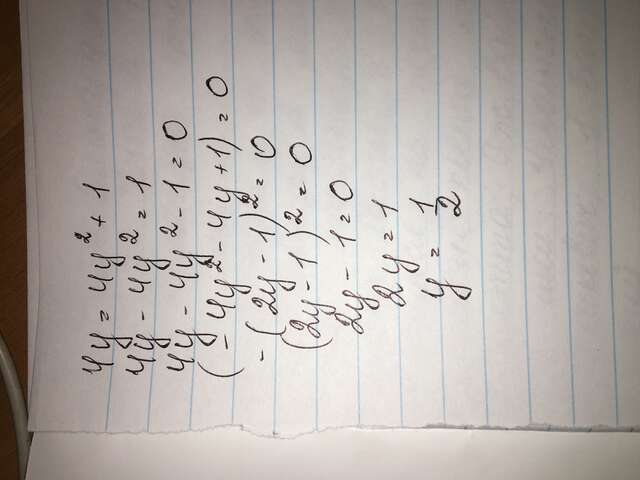 4y = 4y² + 1
4y - 4y² = 1
4y - 4y² - 1 = 0
(- 4y² - 4y + 1) = 0
- (2y - 1)² = 0
(2y - 1)² = 0
2y - 1 = 0
2y = 1
y = 1/2